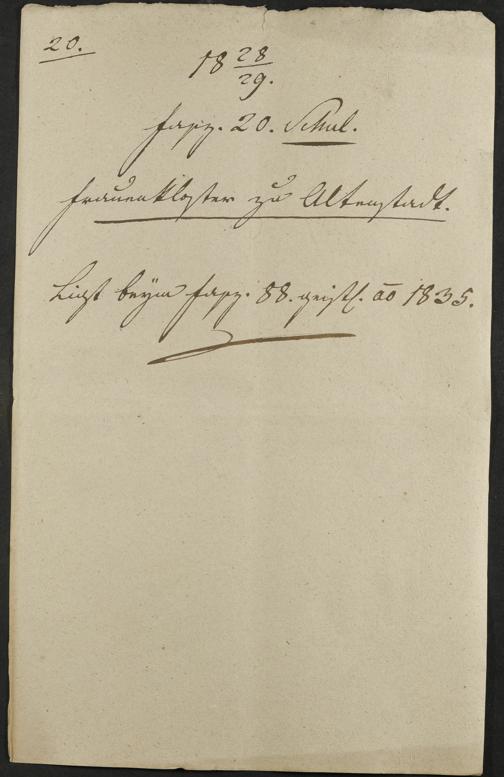 20.
18 28/29.
Fasz. 20. Schul.
Frauenkloster zu Altenstadt.
Ligt beÿm Fasz. 88. geistl. ao 1835.